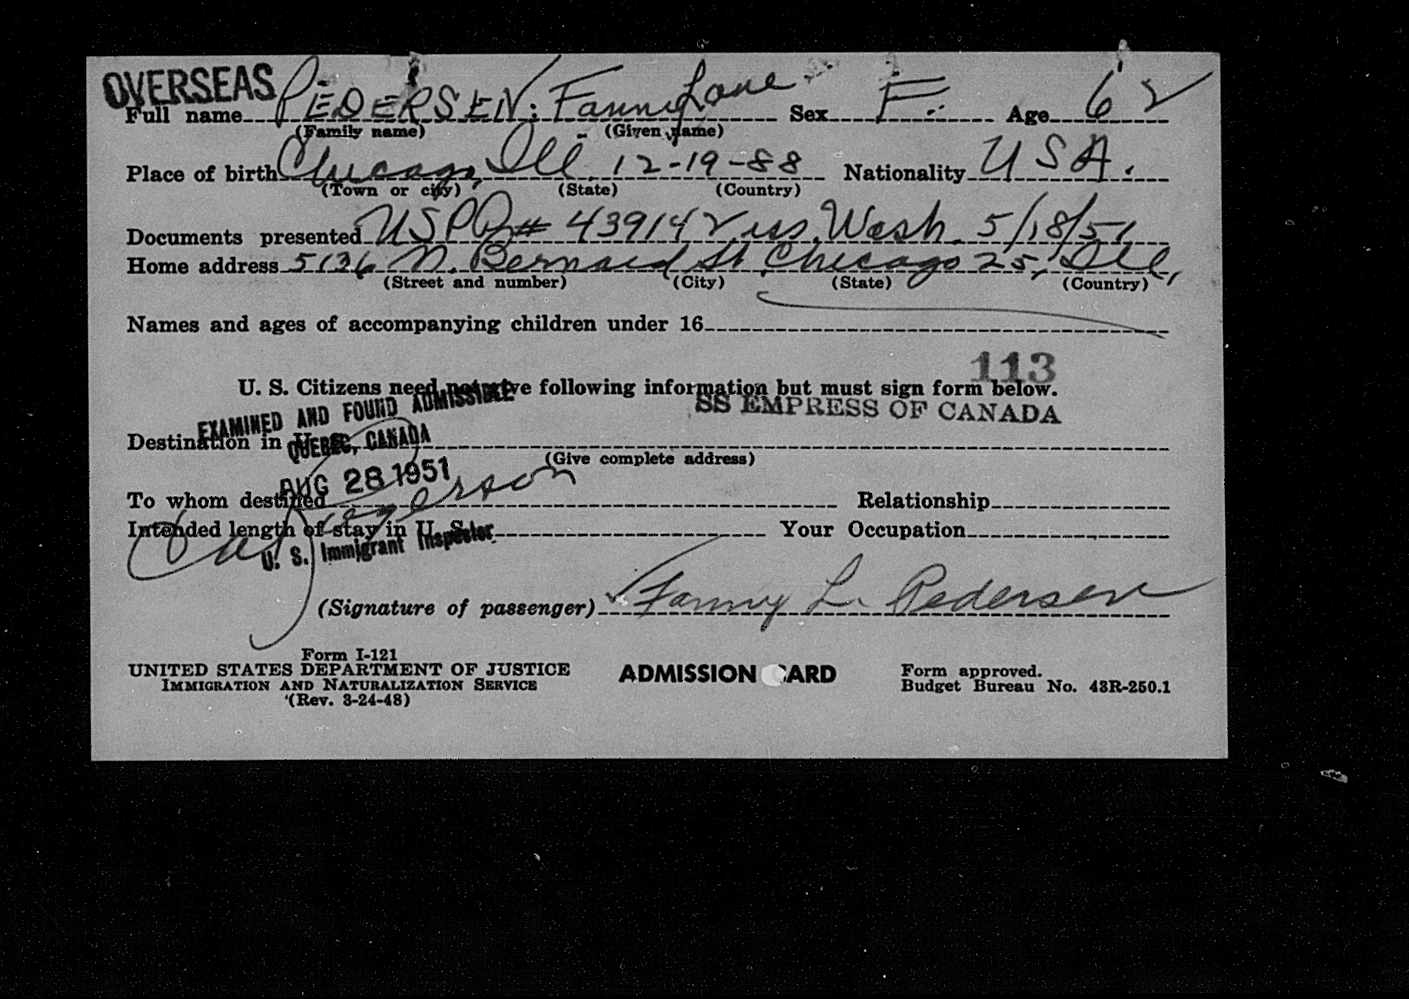 OVERSEAS
Full name PEDERSEN: Fanny Lane Sex F. Age 62
(Family name) (Given name)
Place of birth Chicago, Ill. 12-19-88 Nationality USA.
(Town or city) (State) (Country)
Documents presented USPP# 439142 iss. Wash. 5/18/51
Home address 5136 N. Bernard St. Chicago 25, Ill,
(Street and number) (City) (State) (Country)
Names and ages of accompanying children under 16
113
U. S. Citizens need not give following information but must sign form below.
EXAMINED AND FOUND ADMISSIBLE
SS EMPRESS OF CANADA
Destination in U. S.
QUEBEC, CANADA
(Give complete address)
AUG 28 1951
To whom destined Relationship
Intended length of stay in U. S. Your Occupation
U. S. Immigrant Inspector
(Signature of passenger) Fanny L. Pedersen
Form I-121
UNITED STATES DEPARTMENT OF JUSTICE ADMISSION CARD Form approved.
IMMIGRATION AND NATURALIZATION SERVICE Budget Bureau No. 43R-250.1
(Rev. 3-24-48)